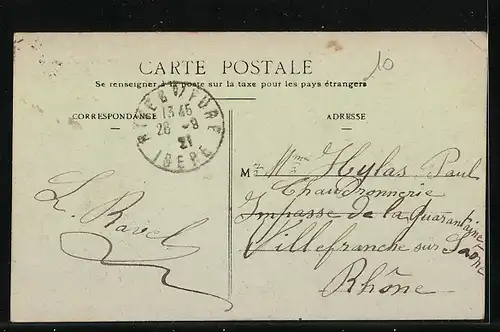 CARTE POSTALE
10
Se renseigner à la poste sur la taxe pour les pays étrangers
CORRESPONDANCE
ADRESSE
RIVES S/ FURE
13 45
26 -8
21
ISERE
M Mme Hylas Paul
Chaudronnerie
Impasse de la Quarantaine
Villefranche sur Saône
Rhône
L. Ravel